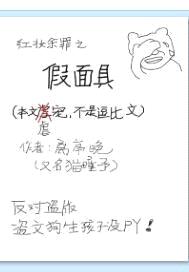 红妆余罪之
假面具
(本文宠,不是逗比文)
虐
作者:离亭晚
(又名猫子)
反对盗版
盗文狗生孩子没PY!